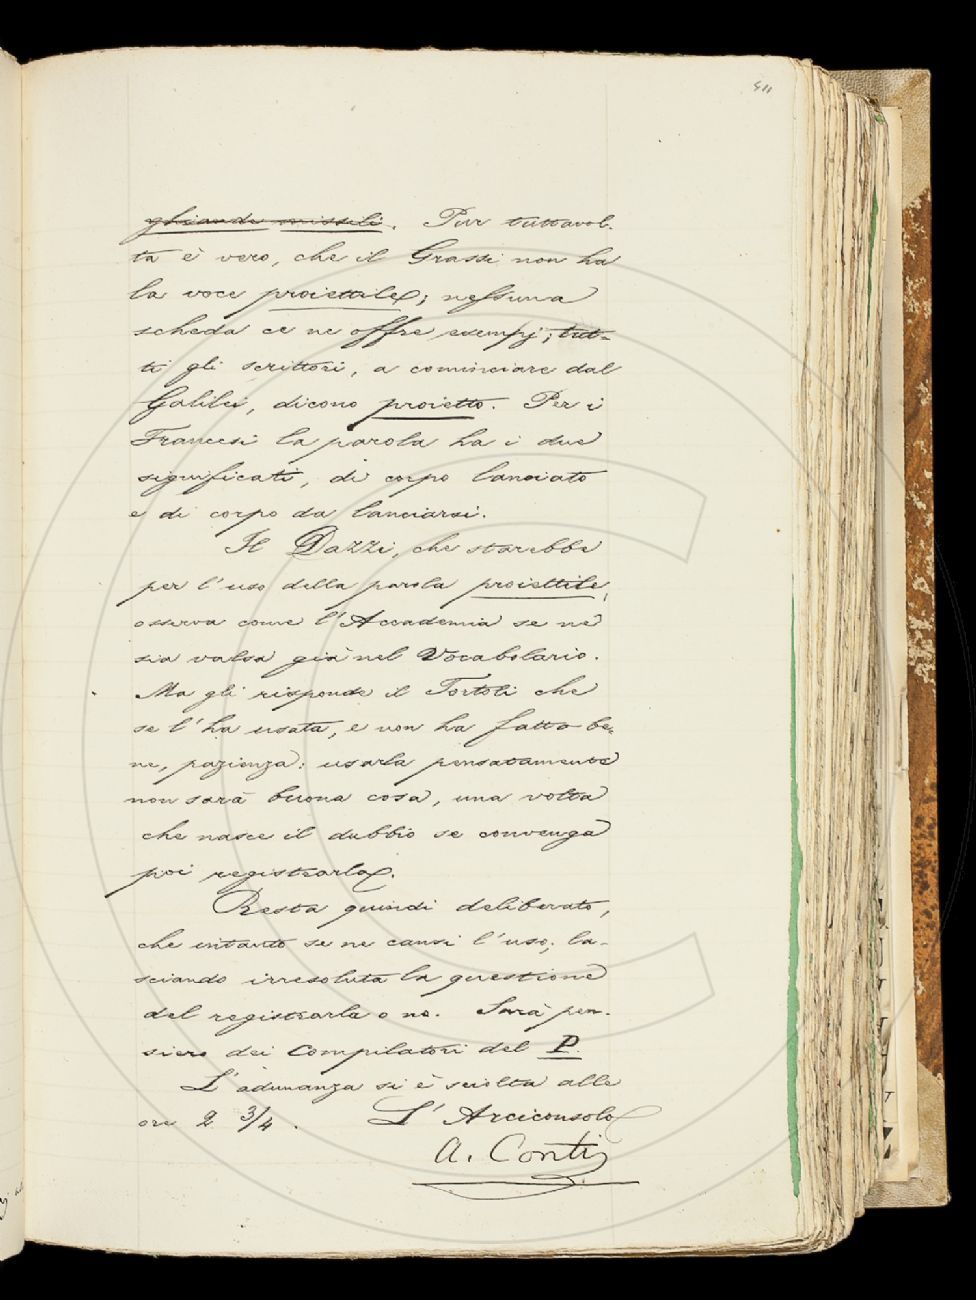 411
ghiande missili. Pur tuttavol-
ta è vero, che il Grassi non ha
la voce proiettile; nessuna
scheda ce ne offre esempj; tut-
ti gli scrittori, a cominciare dal
Galilei, dicono proietto. Per i
Francesi la parola ha i due
significati, di corpo lanciato
e di corpo da lanciarsi.
Il Dazzi, che starebbe
per l'uso della parola proiettile,
osserva come l'Accademia se ne
sia valsa già nel Vocabolario.
Ma gli risponde il Tortoli che
se l'ha usata, e non ha fatto be-
ne, pazienza: usarla pensatamente
non sarà buona cosa, una volta
che nasce il dubbio se convenga
poi registrarla.
Resta quindi deliberato,
che intanto se ne cansi l'uso, la-
sciando irresoluta la questione
del registrarla o no. Sarà pen-
siero dei Compilatori del P.
L'adunanza si è sciolta alle
ore 2 3/4. L'Arciconsolo
A. Conti